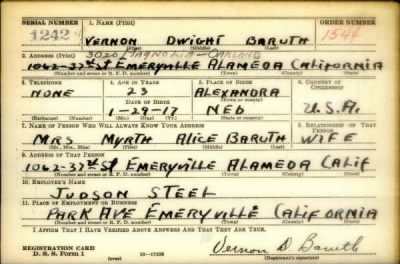 SERIAL NUMBER 1. NAME (Print) ORDER NUMBER
1242 VERNON DWIGHT BARUTH 1544
(First) (Middle) (Last)
2. ADDRESS (Print) 3020 MAGNOLIA - OAKLAND
1062-32nd St EMERYVILLE ALAMEDA CALIFORNIA
(Number and street or R. F. D. number) (Town) (County) (State)
3. TELEPHONE 4. AGE IN YEARS 5. PLACE OF BIRTH 6. COUNTRY OF CITIZENSHIP
NONE 23 ALEXANDRA
DATE OF BIRTH (Town or county)
1-29-17 NEB U.S.A.
(Exchange) (Number) (Mo.) (Day) (Yr.) (State or country)
7. NAME OF PERSON WHO WILL ALWAYS KNOW YOUR ADDRESS 8. RELATIONSHIP OF THAT PERSON
MRS MYRTH ALICE BARUTH WIFE
(Mr., Mrs., Miss) (First) (Middle) (Last)
9. ADDRESS OF THAT PERSON
1062-32nd St EMERYVILLE ALAMEDA CALIF
(Number and street or R. F. D. number) (Town) (County) (State)
10. EMPLOYER'S NAME
JUDSON STEEL
11. PLACE OF EMPLOYMENT OR BUSINESS
PARK AVE EMERYVILLE CALIFORNIA
(Number and street or R. F. D. number) (Town) (County) (State)
I AFFIRM THAT I HAVE VERIFIED ABOVE ANSWERS AND THAT THEY ARE TRUE.
REGISTRATION CARD
D. S. S. FORM 1 (over) Vernon D Baruth
(Registrant's signature)